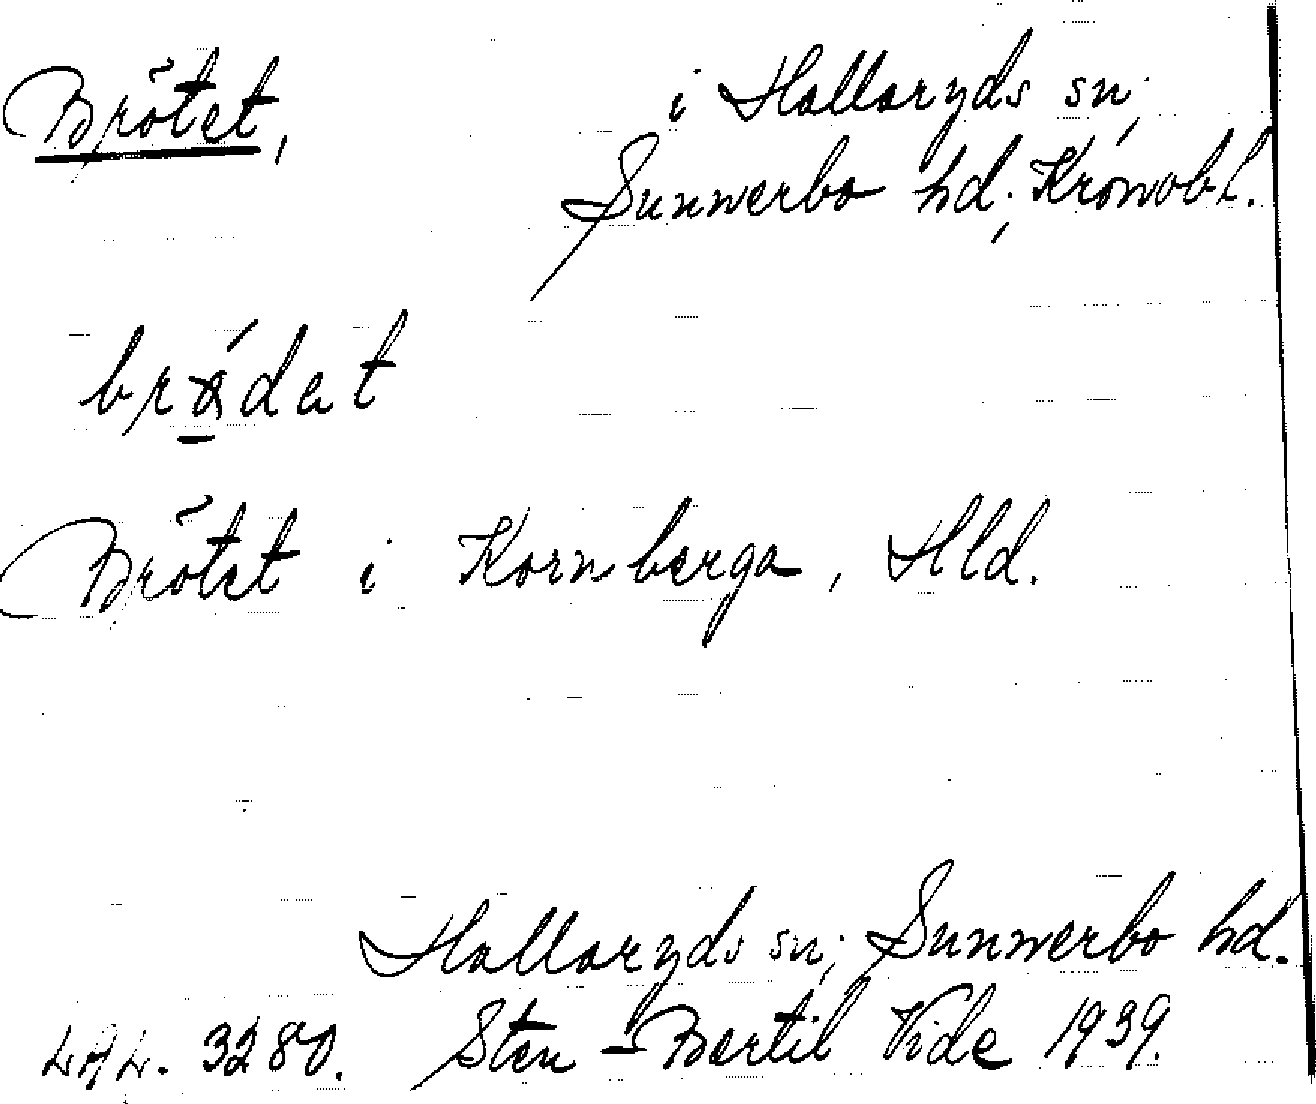 Brötet, i Hallaryds sn;
Sunnerbo hd; Kronobl.
brǿdat
Brötet i Kornberga, Hld.
Hallaryds sn; Sunnerbo hd.
LAL. 3280. Sten-Bertil Vide 1939.